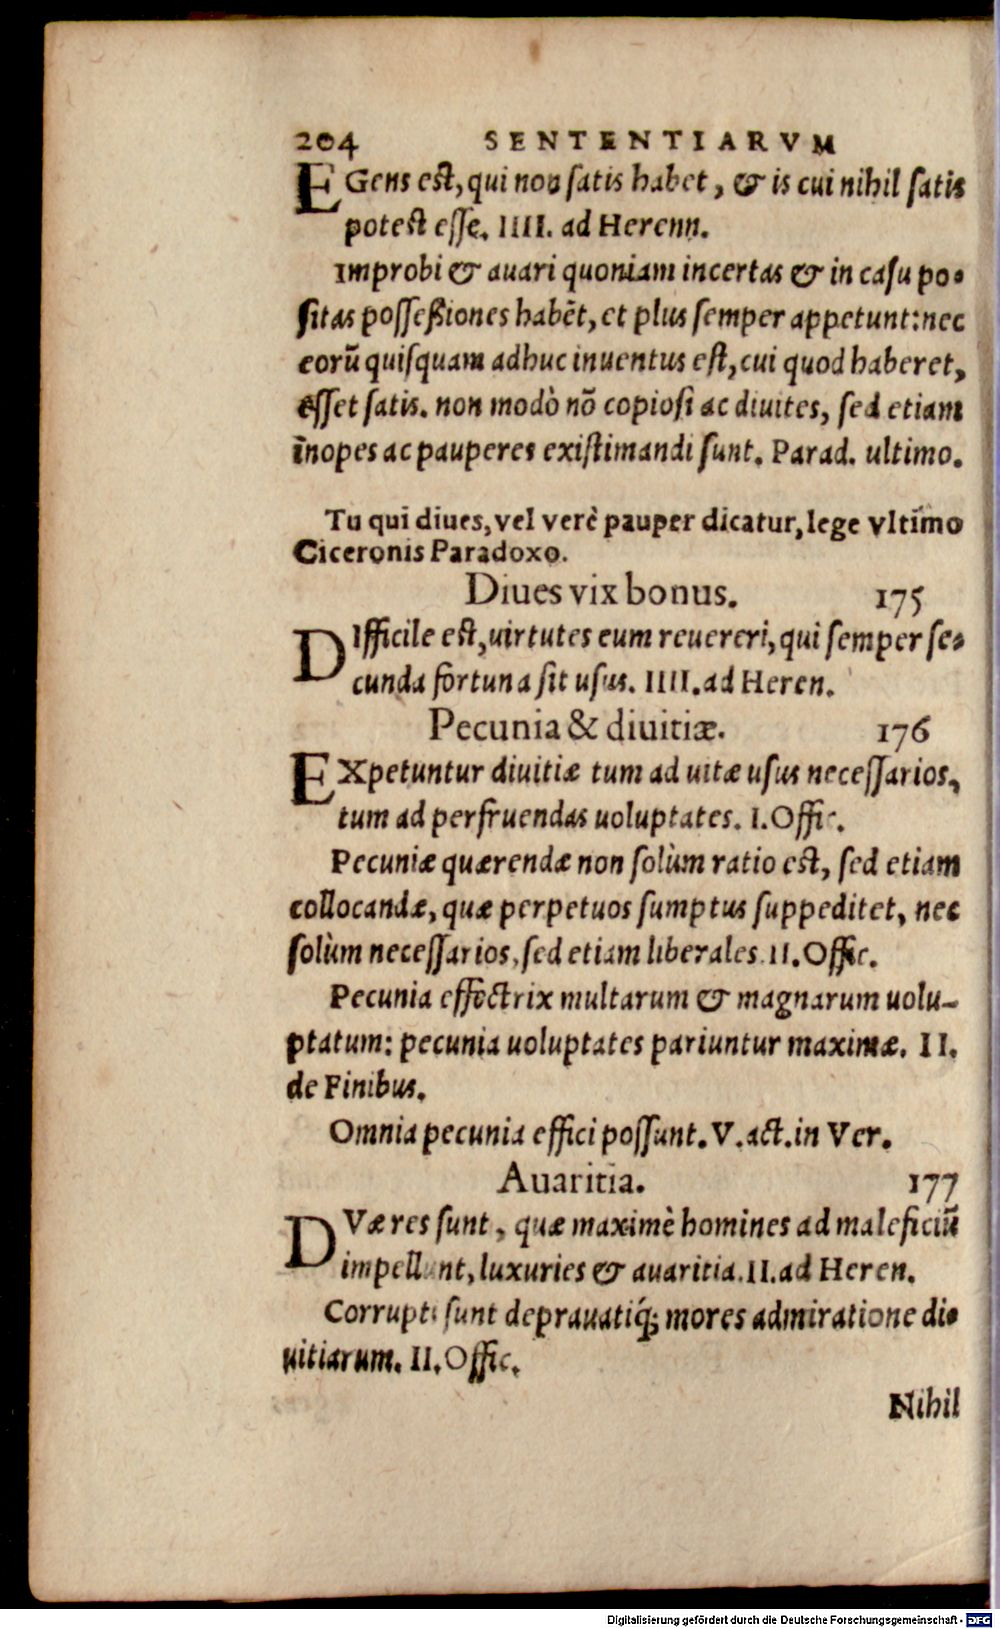 204 SENTENTIARVM
EGens est, qui non satis habet, & is cui nihil satis
potest esse. IIII. ad Herenn.
Improbi & auari quoniam incertas & in casu po-
sitas possessiones habēt, et plus semper appetunt: nec
eorū quisquam adhuc inuentus est, cui quod haberet,
esset satis. non modò nō copiosi ac diuites, sed etiam
inopes ac pauperes existimandi sunt. Parad. ultimo.
Tu qui diues, vel verè pauper dicatur, lege vltimo
Ciceronis Paradoxo.
Diues vix bonus. 175
DIfficile est, uirtutes eum reuereri, qui semper se-
cunda fortuna sit usus. IIII. ad Heren.
Pecunia & diuitiæ. 176
EXpetuntur diuitiæ tum ad uitæ usus necessarios,
tum ad perfruendas uoluptates. I. Offic.
Pecuniæ quærendæ non solùm ratio est, sed etiam
collocandæ, quæ perpetuos sumptus suppeditet, nec
solùm necessarios, sed etiam liberales. II. Offic.
Pecunia effectrix multarum & magnarum uolu-
ptatum: pecunia uoluptates pariuntur maximæ. II.
de Finibus.
Omnia pecunia effici possunt. V. act. in Ver.
Auaritia. 177
DVæ res sunt, quæ maximè homines ad maleficiū
impellunt, luxuries & auaritia. II. ad Heren.
Corrupti sunt deprauatiq́; mores admiratione di-
uitiarum. II. Offic.
Nihil
Digitalisierung gefördert durch die Deutsche Forschungsgemeinschaft - DFG